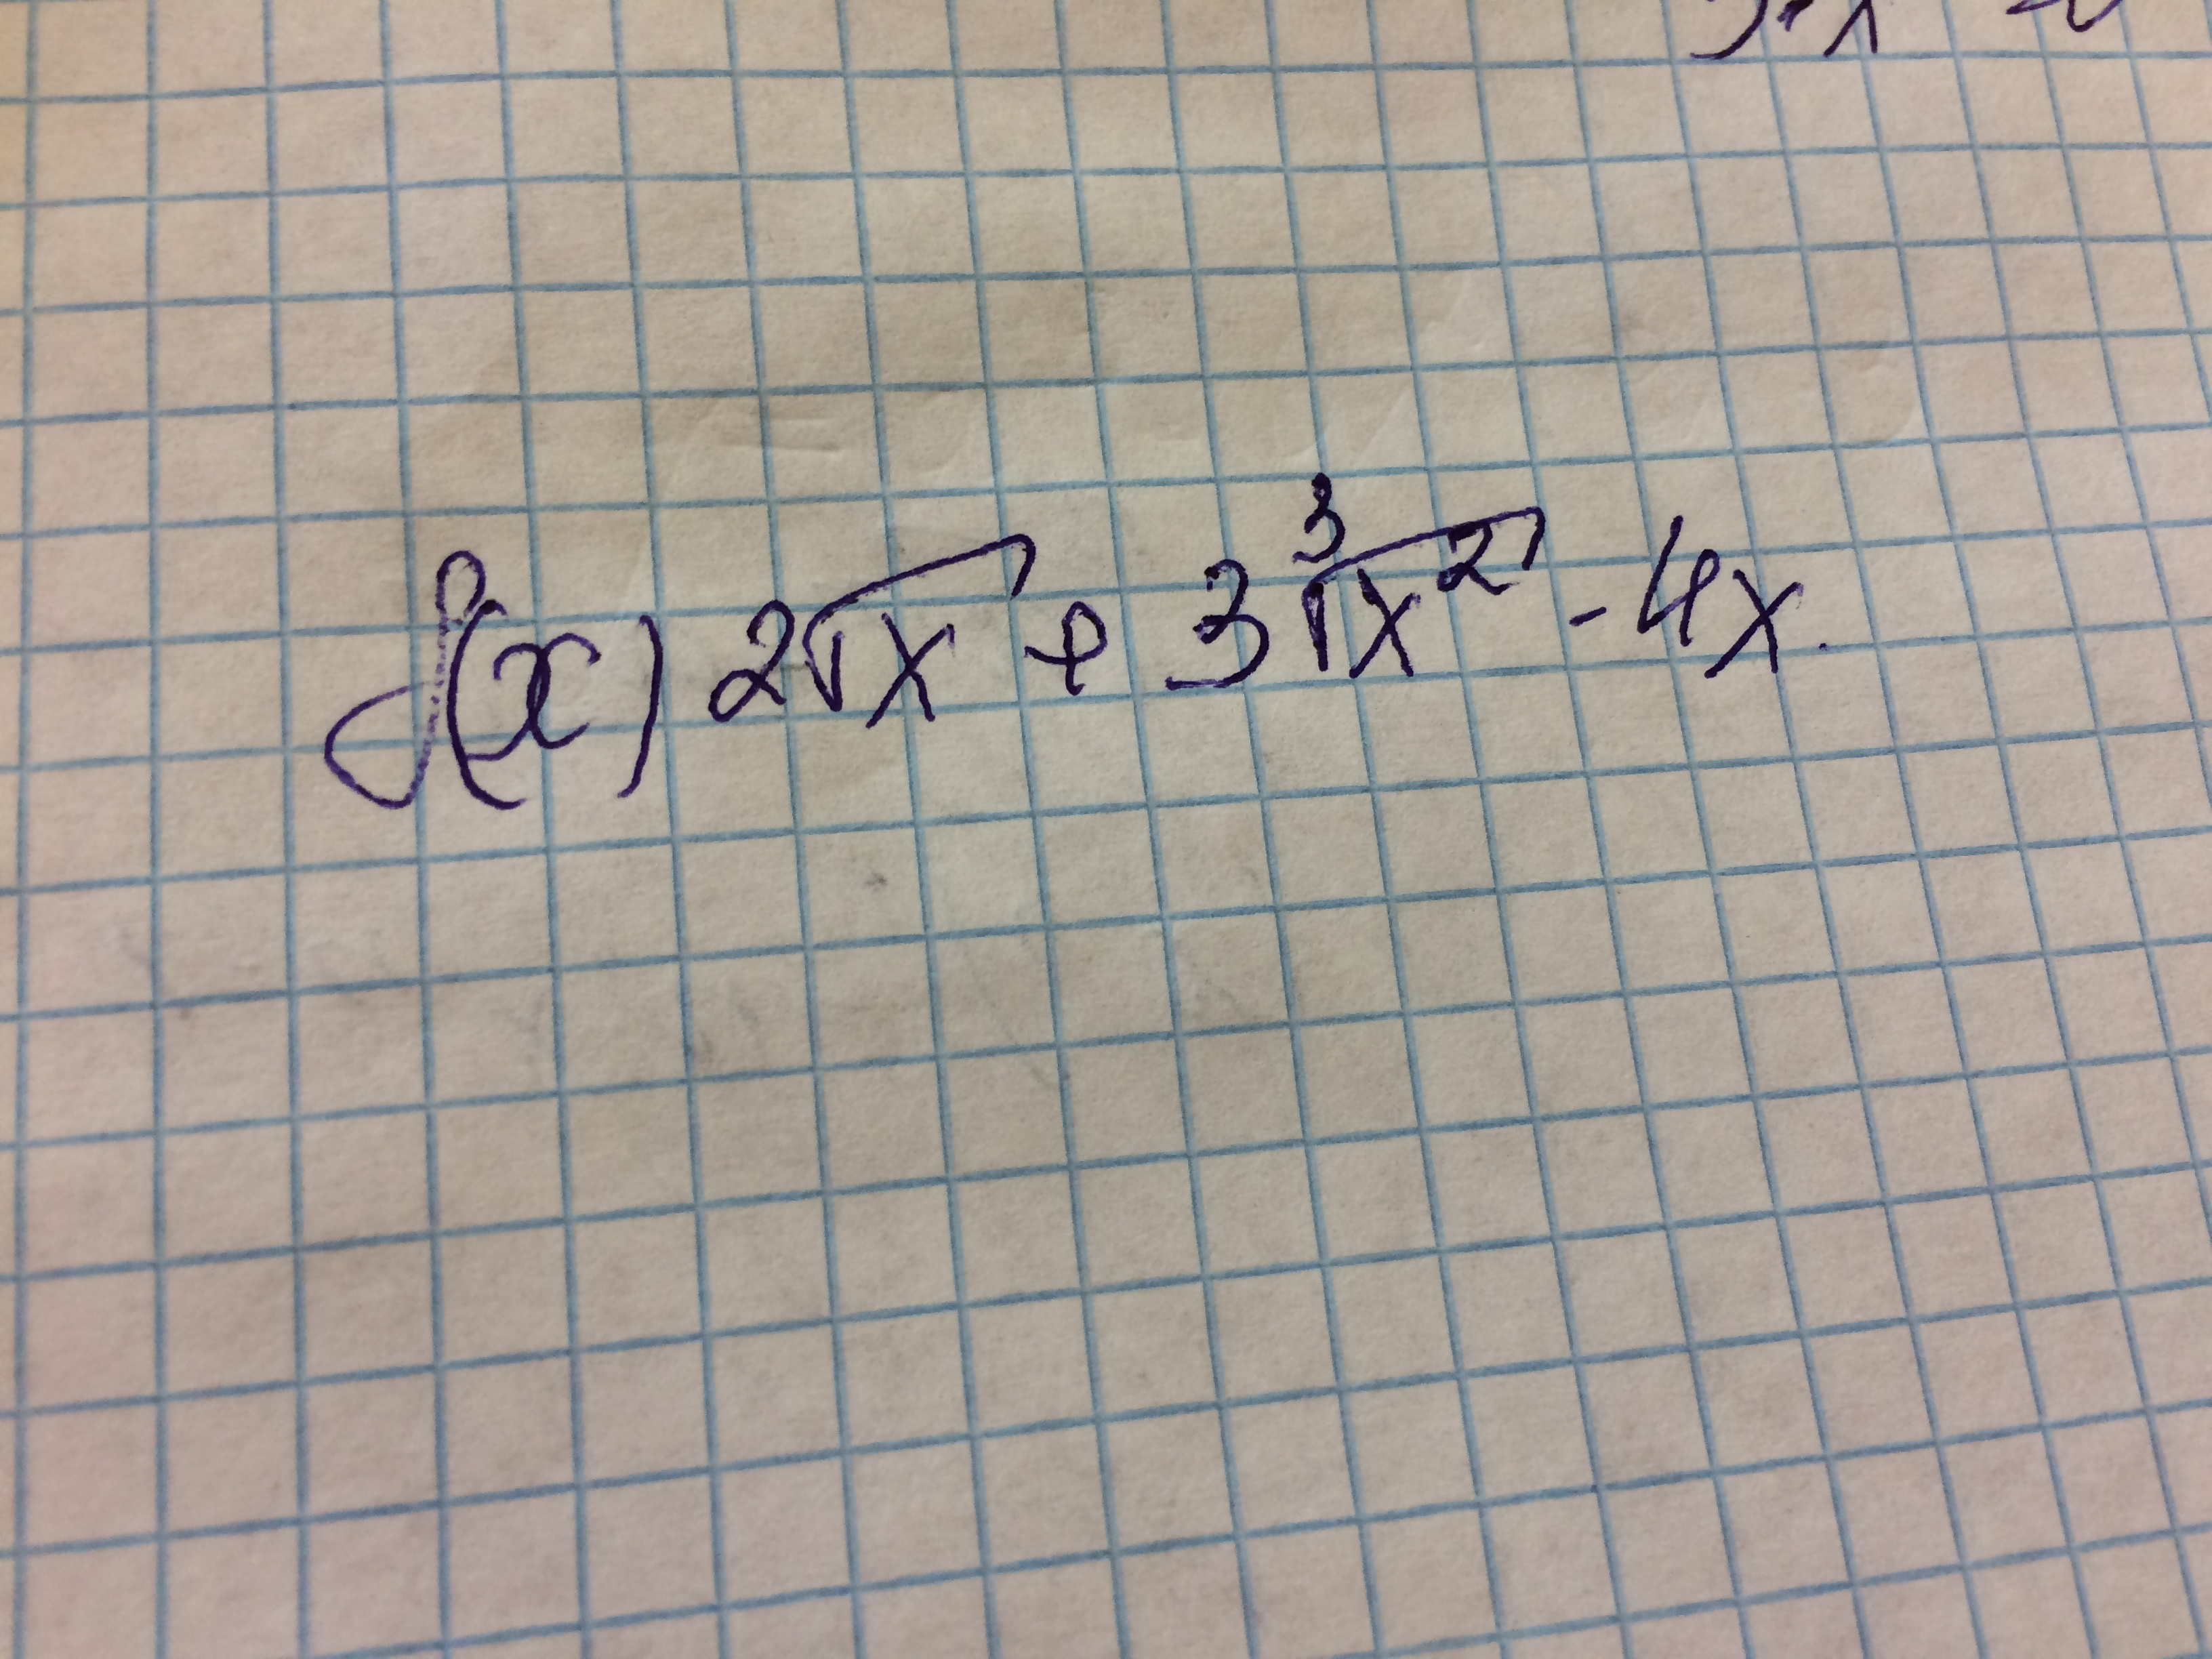 f(x) 2√x + 3 ∛x² - 4x.